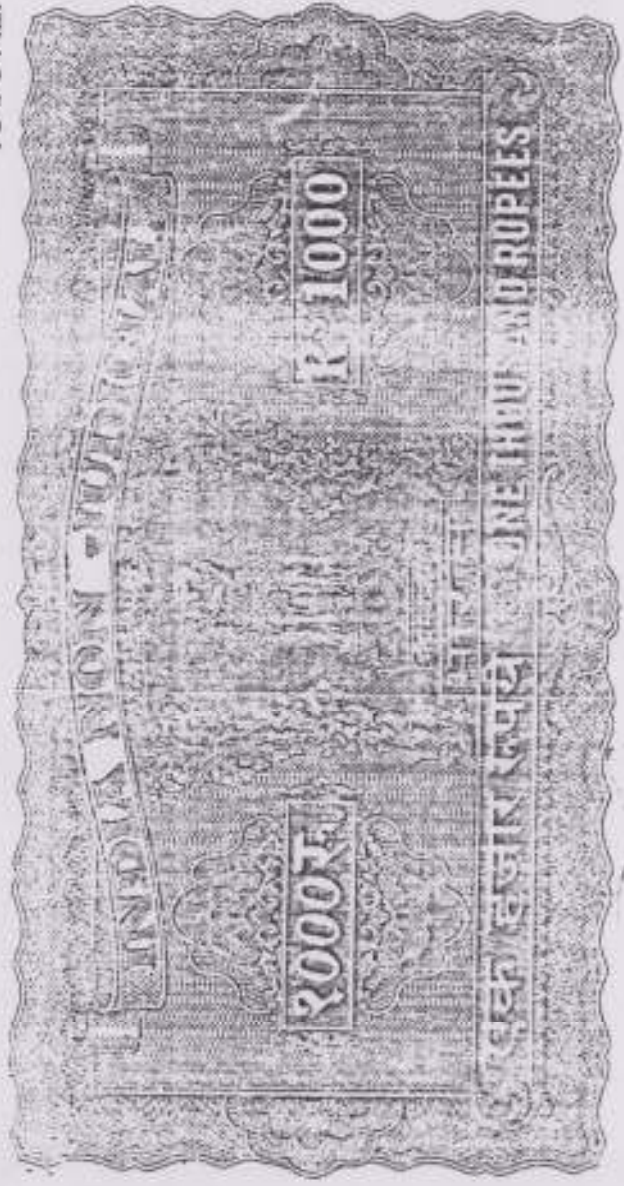 INDIA NON JUDICIAL
१०००रु. Rs 1000
भारत
एक हजार रुपये ONE THOUSAND RUPEES